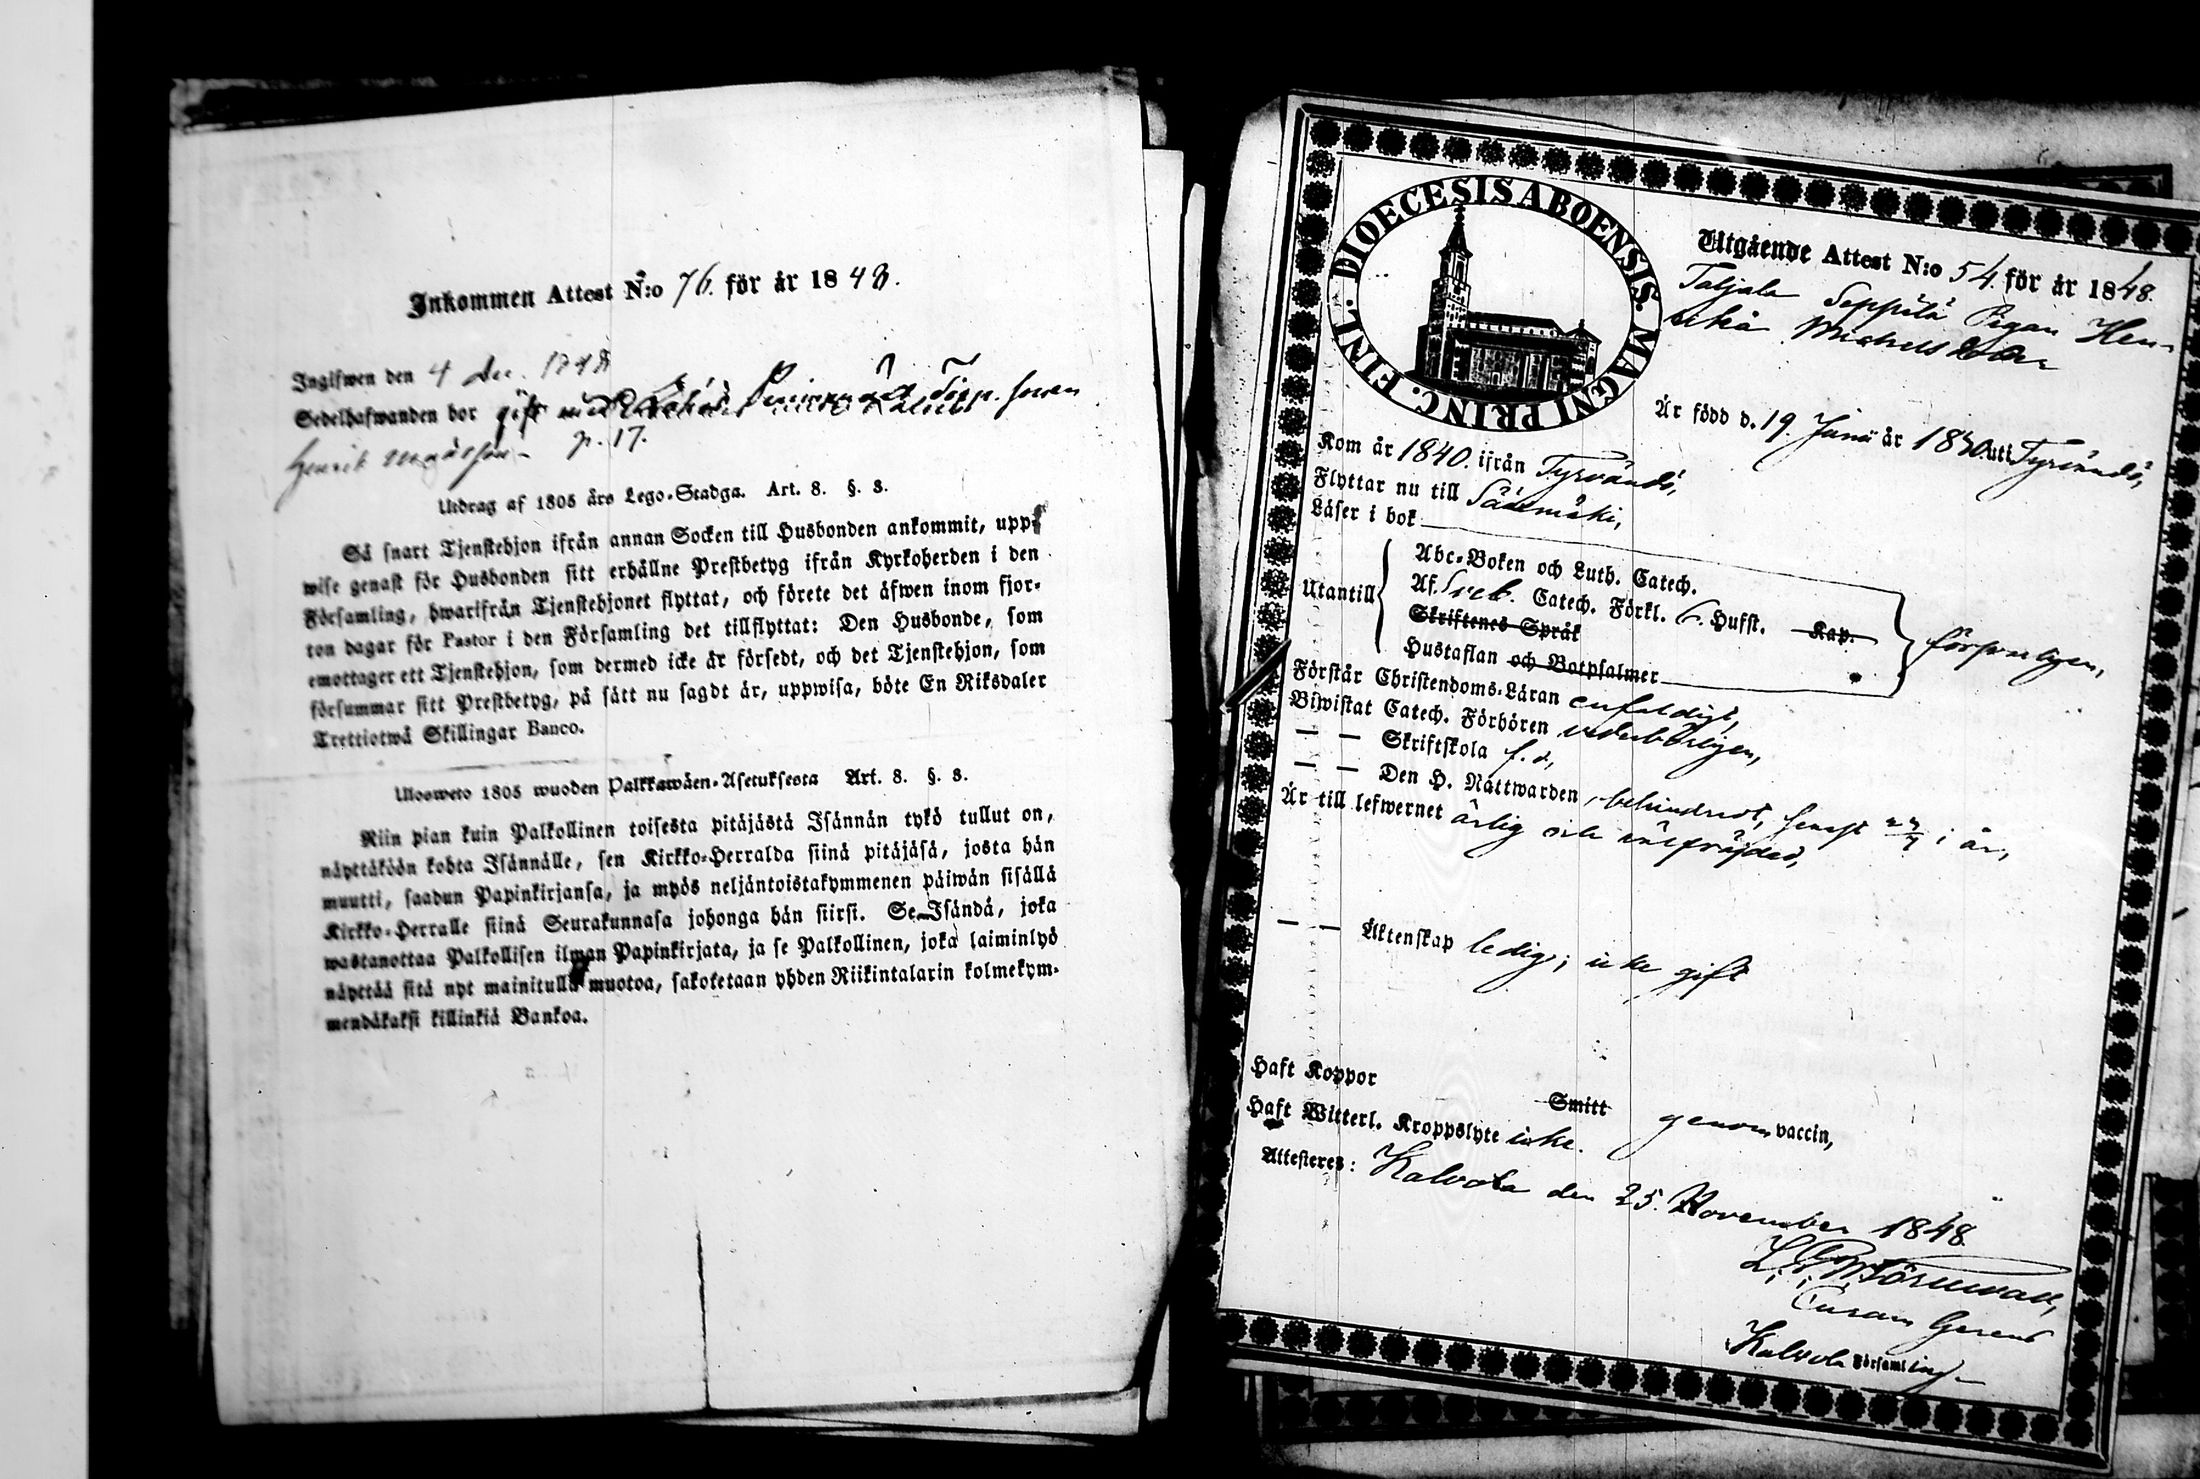 Inkommen Attest N:o 76. för år 1848.
Inglfwen den 4 dec. 1848
Sedelhafwanden bor gift med
Henrik p. 17.
Utdrag af 1805 års Lego-Stadga. Art. 8. §. 8.
Så snart Tjenstehjon ifrån annan Socken till Husbonden ankommit, upp-
wise genast för Husbonden sitt erhållne Prestbetyg ifrån Kyrkoherden i den
Församling, hwarifrån Tjenstehjonet flyttat, och förete det äfwen inom fjor-
ton dagar för Pastor i den Församling det tillflyttat: Den Husbonde, som
emottager ett Tjenstehjon, som dermed icke är försedt, och det Tjenstehjon, som
försummar sitt Prestbetyg, på sätt nu sagdt är, uppwisa, böte En Riksdaler
Trettiotwå Skillingar Banco.
Ulosweto 1805 wuoden Palkkawäen-Asetuksesta Art. 8. §. 8.
Niin pian kuin Palkollinen toisesta pitäjästä Isännän tykö tullut on,
näyttäköön kohta Isännälle, sen Kirkko-Herralda siinä pitäjäsä, josta hän
muutti, saadun Papinkirjansa, ja myös neljäntoistakymmenen päiwän sisällä
Kirkko-Herralle siinä Seurakunnasa johonga hän siirsi. Se Isändä, joka
wastanottaa Palkollisen ilman Papinkirjata, ja se Palkollinen, joka laiminlyö
näyttää sitä nyt mainitulla muotoa, sakotetaan yhden Riikintalarin kolmekym-
mendäkaksi killinkiä Bankoa.
DIOECESIS ABOENSIS. MAGNI PRINC. FINL.
Utgående Attest N:o 54. för år 1848.
Taljala Seppilä Pigan Hen-
rika Michelsdotter
Är född d. 19. Junii år 1830 uti Tyrvändö,
Kom år 1840. ifrån Tyrvändö,
Flyttar nu till Sääxmäki,
Läser i bok
Utantill
Abc-Boken och Luth. Catech.
Af. Sveb. Catech. Förkl. 6. Hufst. Kap.
Skriftenes Språk
Hustaflan och Botpsalmer
försvarligen,
Förstår Christendoms-Läran enfaldigt,
Biwistat Catech. Förhören vederbörligen,
— — Skriftskola f. d,
— — Den H. Nattwarden, obehindradt, senast i år,
Är till lefwernet ärlig och välfräjdad,
— — Äktenskap ledig; icke gift
Haft Koppor Smitt genom vaccin,
Haft Witterl. Kroppslyte icke.
Attesteres: Kalvola den 25. November 1848.
Törnewall,
Curam Gerens
Kalvola Församling